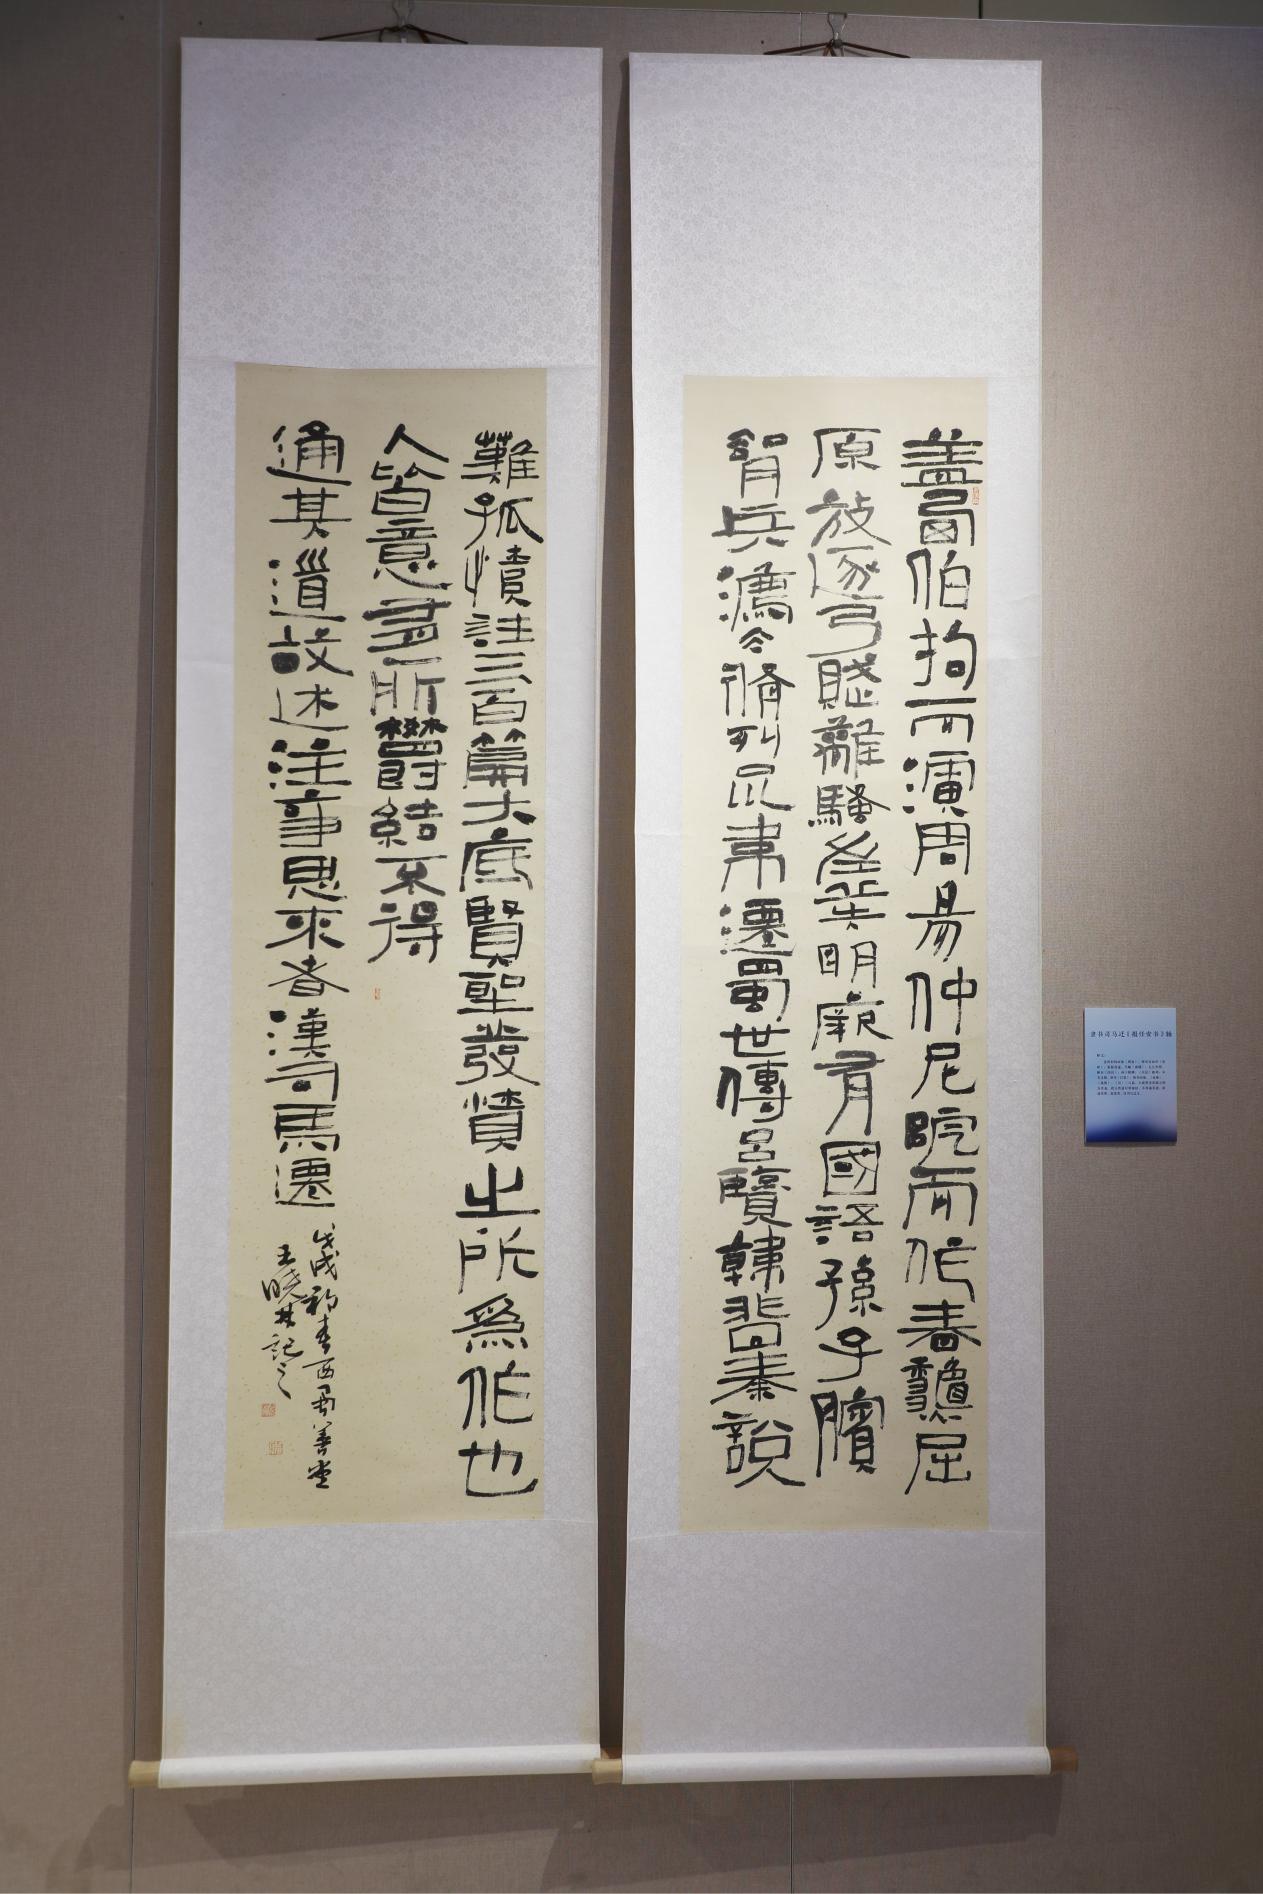 蓋西伯拘而演周易仲尼戹而作春龝屈
原放逐乃賦離騷左丘失明厥有國語孫子臏
脚兵灋脩列不韋遷蜀世傳呂覽韓非囚秦說
難孤憤詩三百篇大底賢聖發憤之所為作也
人皆意有所鬱結不得
通其道故述往事思來者漢司馬遷
戊戌初春西 善堂
王曉林記之
隶书司马迁《报任安书》轴
释文：